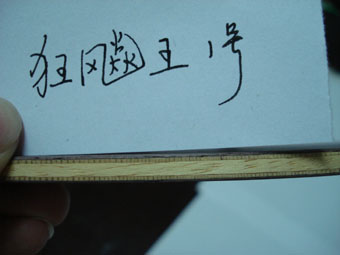 狂飚王1号